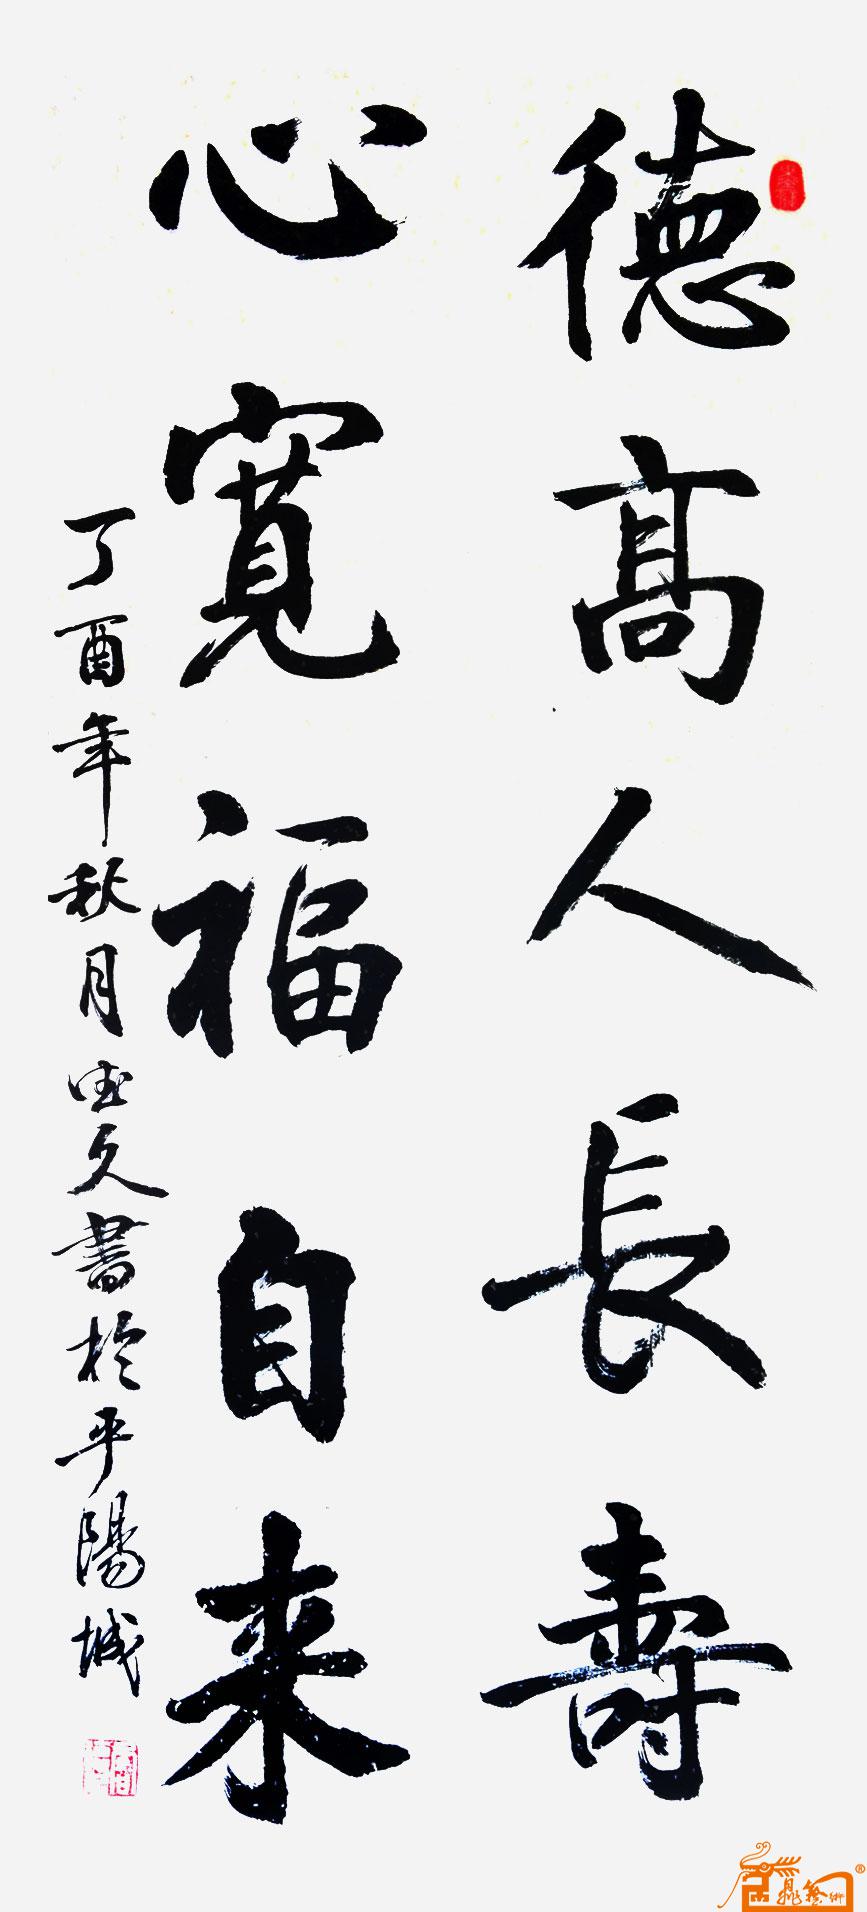 德高人長壽
心寬福自来
丁酉年秋月德久書於平陽城